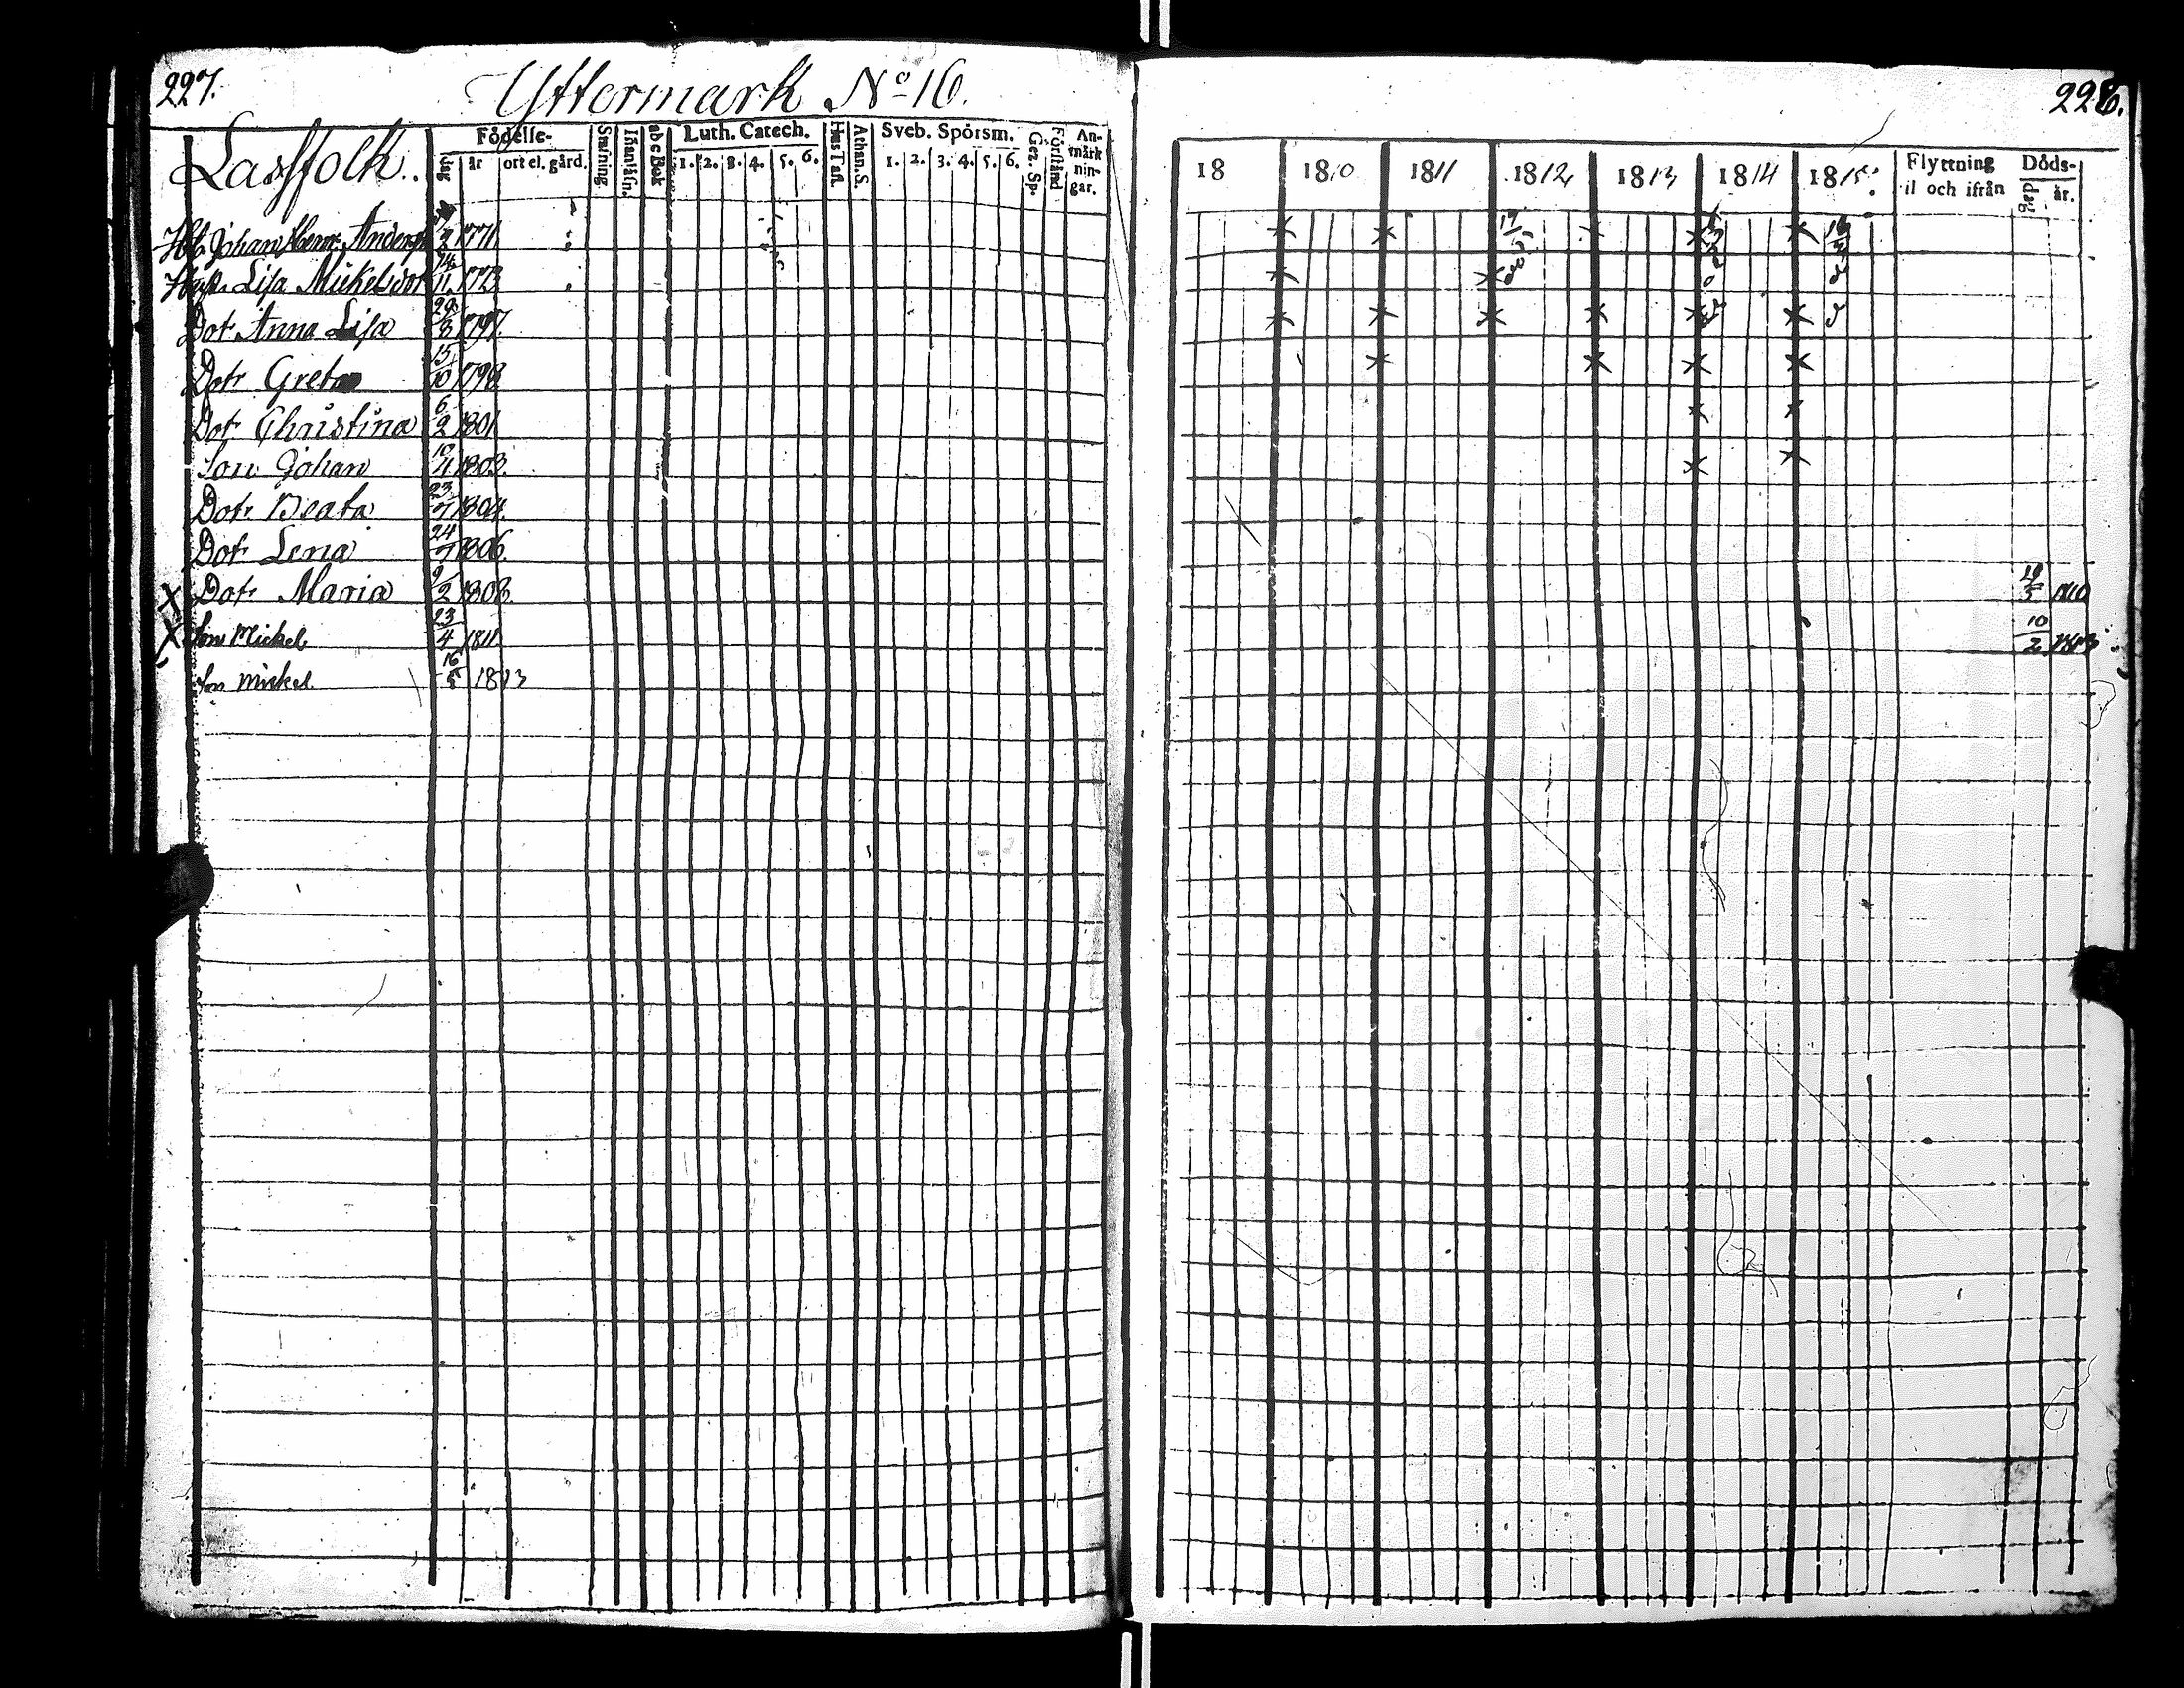 227.
Yttermark No 16.
228.
Lassfolk.
Födelse-
dag
år
ort el. gård.
Stafning.
Innanläsn.
abc Bok
Luth. Catech.
1. 2. 3. 4. 5. 6.
Hus Tafl.
Athan. S.
Sveb. Spörsm.
1. 2. 3. 4. 5. 6.
Gez. Sp.
Förstånd
An-
märk
nin-
gar.
18
1810
1811
1812
1813
1814
1815
Flyttning
til och ifrån
Döds-
dag
år.
Johan Anders 2 1771
Lisa Mickelsdot 14/11 1773
Dotr Anna Lisa 29/8 1797
Dotr Greta 15/10 1798
Dotr Christina 6/2 1801
Son Johan 10/4 1803.
Dotr Beata 23/7 1804.
Dotr Lena 24/7 1806.
X Dotr Maria 9/2 1808 1810
X Son Mickel 23/4 1811 10/2 1813
Son Mickel 16/5 1813